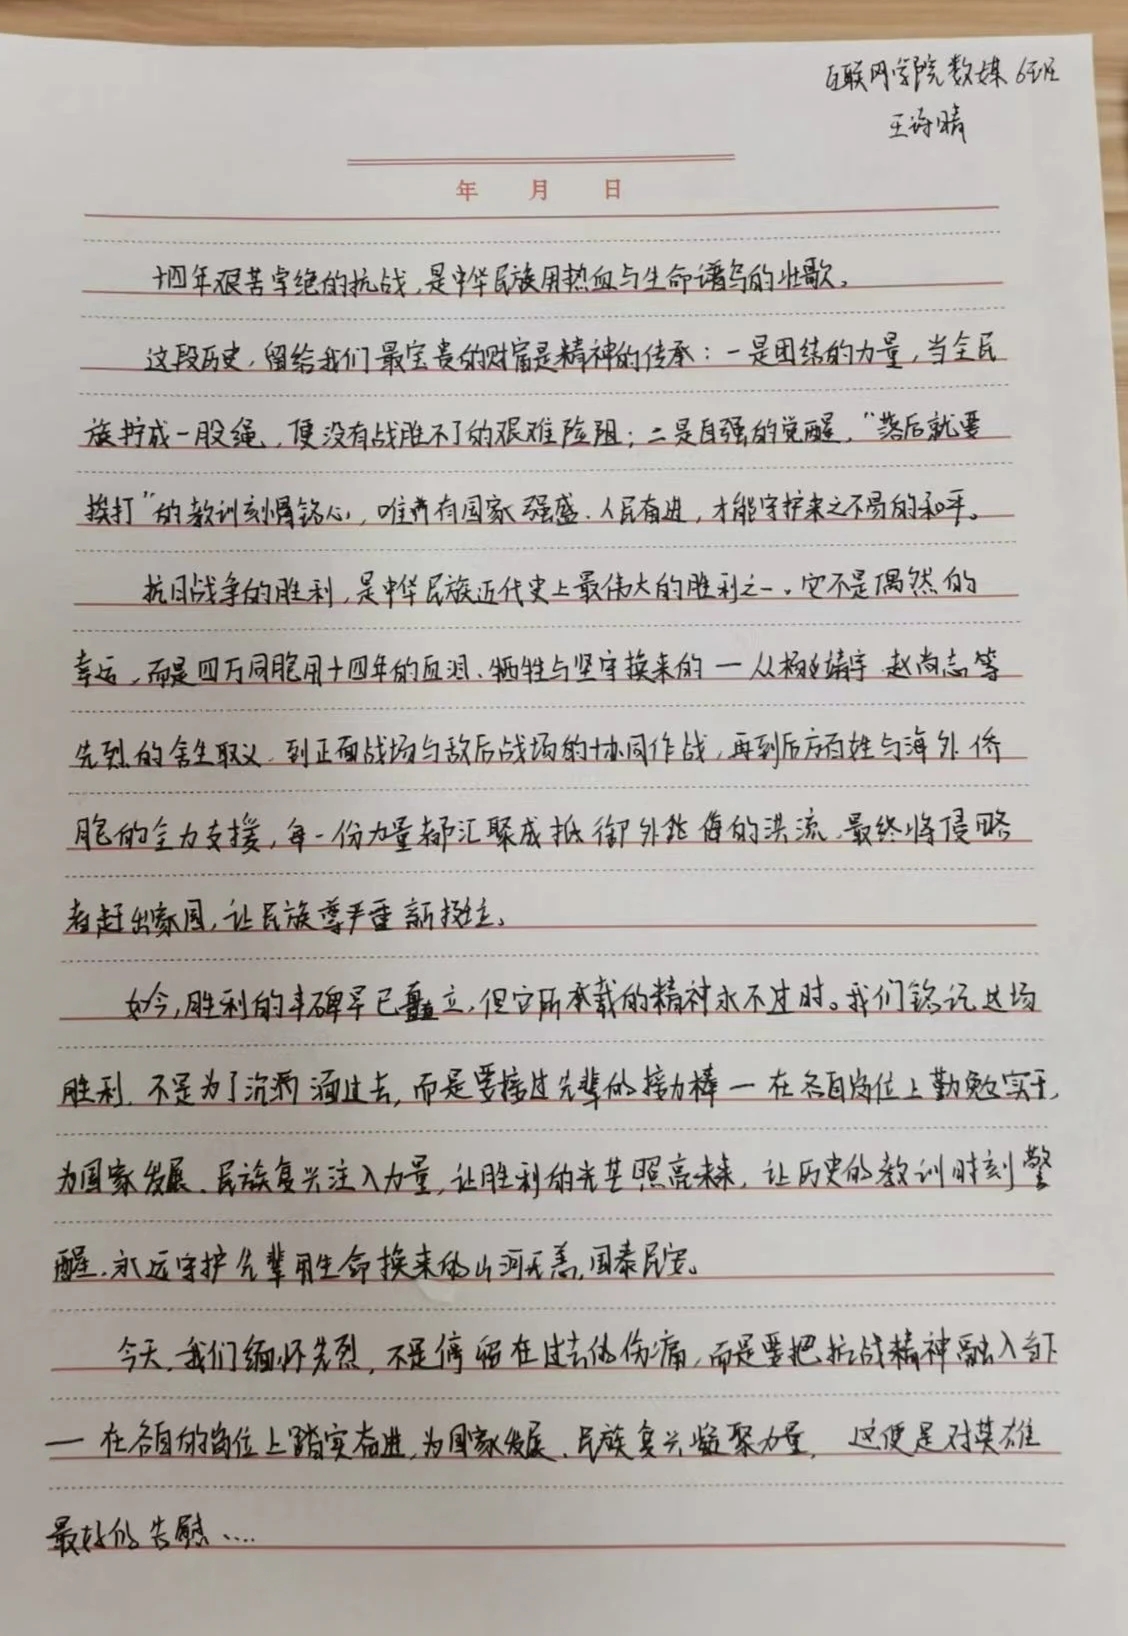 互联网学院数媒6班
王诗晴
年 月 日
十四年艰苦卓绝的抗战，是中华民族用热血与生命谱写的壮歌。
这段历史，留给我们最宝贵的财富是精神的传承：一是团结的力量，当全民
族拧成一股绳，便没有战胜不了的艰难险阻；二是自强的觉醒，“落后就要
挨打”的教训刻骨铭心，唯有国家强盛、人民奋进，才能守护来之不易的和平。
抗日战争的胜利，是中华民族近代史上最伟大的胜利之一。它不是偶然的
幸运，而是四万同胞用十四年的血泪、牺牲与坚守换来的—从杨靖宇、赵尚志等
先烈的舍生取义，到正面战场与敌后战场的协同作战，再到后方百姓与海外侨
胞的全力支援，每一份力量都汇聚成抵御外侮的洪流，最终将侵略
者赶出家国，让民族尊严重新挺立。
如今，胜利的丰碑早已矗立，但它所承载的精神永不过时。我们铭记这场
胜利，不是为了沉湎过去，而是要接过先辈的接力棒—在各自岗位上勤勉实干，
为国家发展、民族复兴注入力量，让胜利的光芒照亮未来，让历史的教训时刻警
醒，永远守护先辈用生命换来的山河无恙，国泰民安。
今天，我们缅怀先烈，不是停留在过去的伤痛，而是要把抗战精神融入当下
—在各自的岗位上踏实奋进，为国家发展、民族复兴凝聚力量，这便是对英雄
最好的告慰....